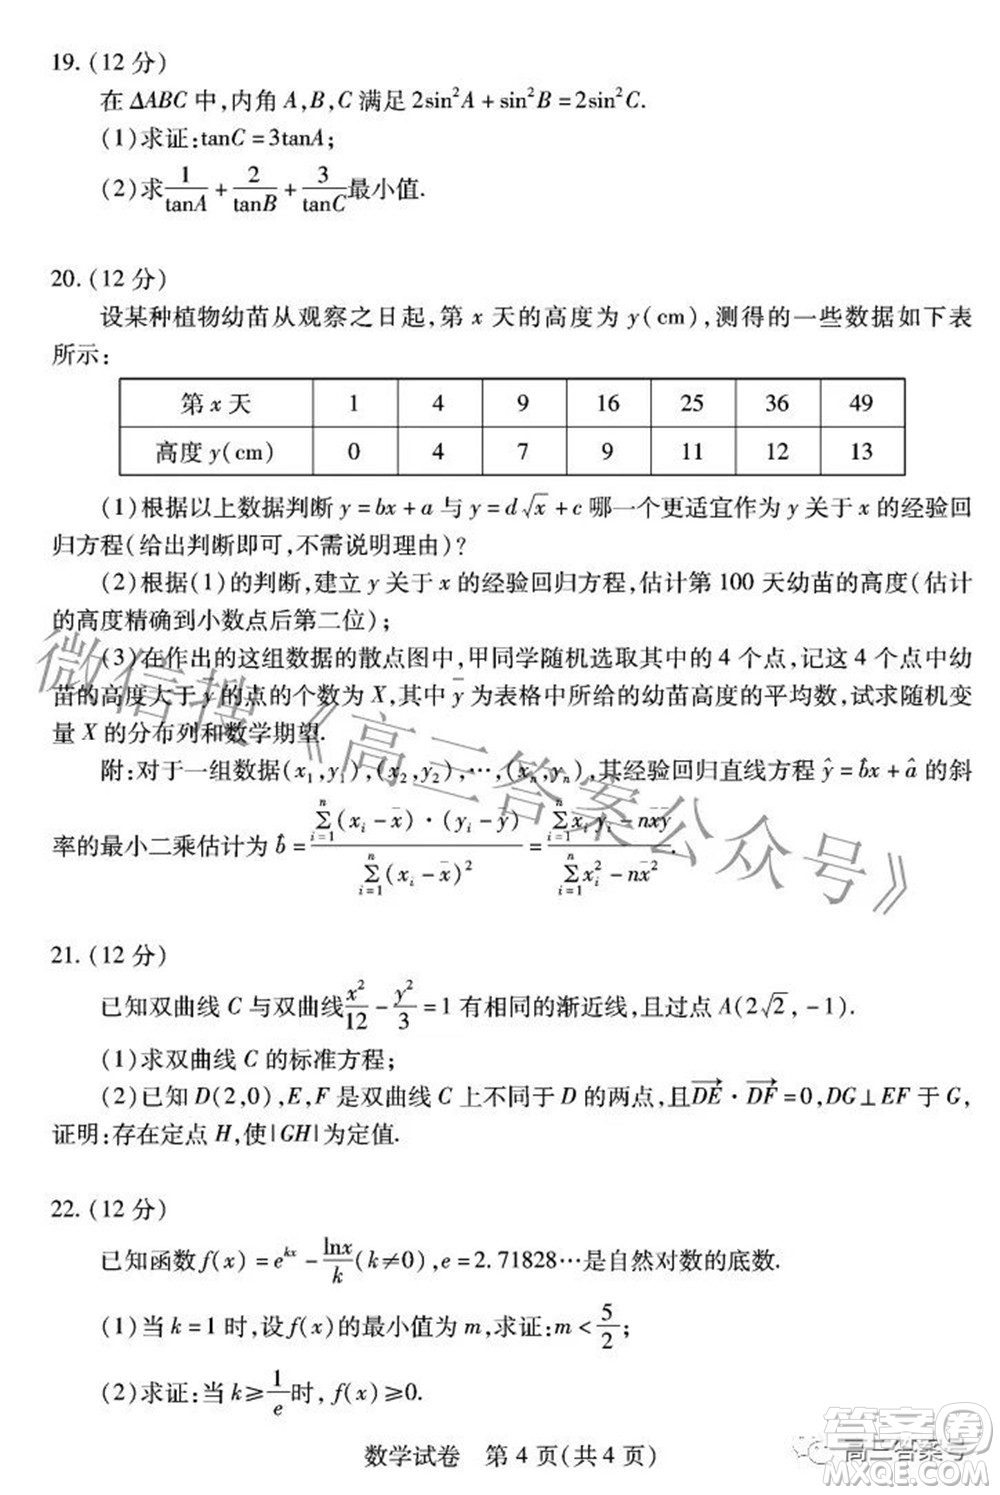 19. (12 分)
在 ΔABC 中,内角 A,B,C 满足 2sin²A + sin²B = 2sin²C.
(1)求证:tanC = 3tanA;
(2)求 1/tanA + 2/tanB + 3/tanC 最小值.
20. (12 分)
设某种植物幼苗从观察之日起,第 x 天的高度为 y(cm),测得的一些数据如下表
所示:
第 x 天 1 4 9 16 25 36 49
高度 y(cm) 0 4 7 9 11 12 13
(1)根据以上数据判断 y = bx + a 与 y = d√x + c 哪一个更适宜作为 y 关于 x 的经验回
归方程(给出判断即可,不需说明理由)?
(2)根据(1)的判断,建立 y 关于 x 的经验回归方程,估计第 100 天幼苗的高度(估计
的高度精确到小数点后第二位);
(3)在作出的这组数据的散点图中,甲同学随机选取其中的 4 个点,记这 4 个点中幼
苗的高度大于 y̅ 的点的个数为 X,其中 y̅ 为表格中所给的幼苗高度的平均数,试求随机变
量 X 的分布列和数学期望.
附:对于一组数据(x₁,y₁),(x₂,y₂),…,(xₙ,yₙ),其经验回归直线方程 ŷ = b̂x + â 的斜
率的最小二乘估计为 b̂ = ∑ⁿᵢ₌₁(xᵢ - x̅)·(yᵢ - y̅) / ∑ⁿᵢ₌₁(xᵢ - x̅)² = (∑ⁿᵢ₌₁xᵢyᵢ - nx̅y̅) / (∑ⁿᵢ₌₁xᵢ² - nx̅²).
21. (12 分)
已知双曲线 C 与双曲线 x²/12 - y²/3 = 1 有相同的渐近线,且过点 A(2√2, -1).
(1)求双曲线 C 的标准方程;
(2)已知 D(2,0),E,F 是双曲线 C 上不同于 D 的两点,且 DE→ · DF→ = 0,DG⊥EF 于 G,
证明:存在定点 H,使|GH|为定值.
22. (12 分)
已知函数 f(x) = eᵏˣ - lnx/k (k≠0),e = 2.71828…是自然对数的底数.
(1)当 k = 1 时,设 f(x)的最小值为 m,求证:m < 5/2;
(2)求证:当 k ≥ 1/e 时,f(x) ≥ 0.
数学试卷 第 4 页(共 4 页)
微信搜《高三答案公众号》
高三答案号
答案圈
MXQE.COM